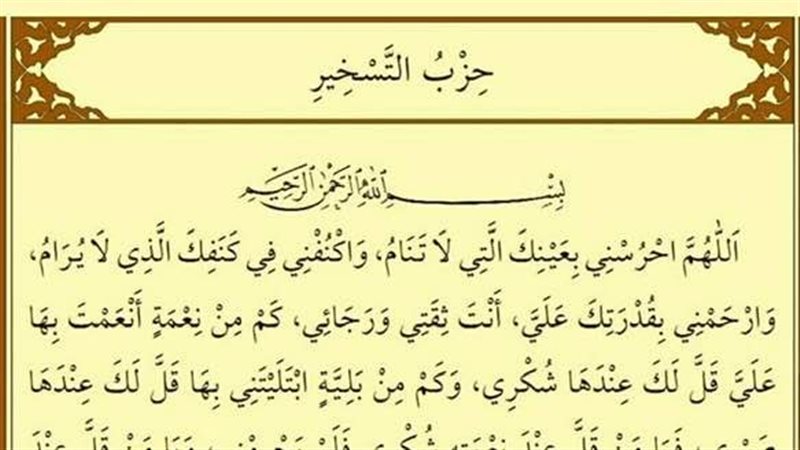 حِزْبُ التَّسْخِيرِ
بِسْمِ اللهِ الرَّحْمٰنِ الرَّحِيمِ
اَللّٰهُمَّ احْرُسْنِي بِعَيْنِكَ الَّتِي لَا تَنَامُ، وَاكْنُفْنِي فِي كَنَفِكَ الَّذِي لَا يُرَامُ،
وَارْحَمْنِي بِقُدْرَتِكَ عَلَيَّ، أَنْتَ ثِقَتِي وَرَجَائِي، كَمْ مِنْ نِعْمَةٍ أَنْعَمْتَ بِهَا
عَلَيَّ قَلَّ لَكَ عِنْدَهَا شُكْرِي، وَكَمْ مِنْ بَلِيَّةٍ ابْتَلَيْتَنِي بِهَا قَلَّ لَكَ عِنْدَهَا